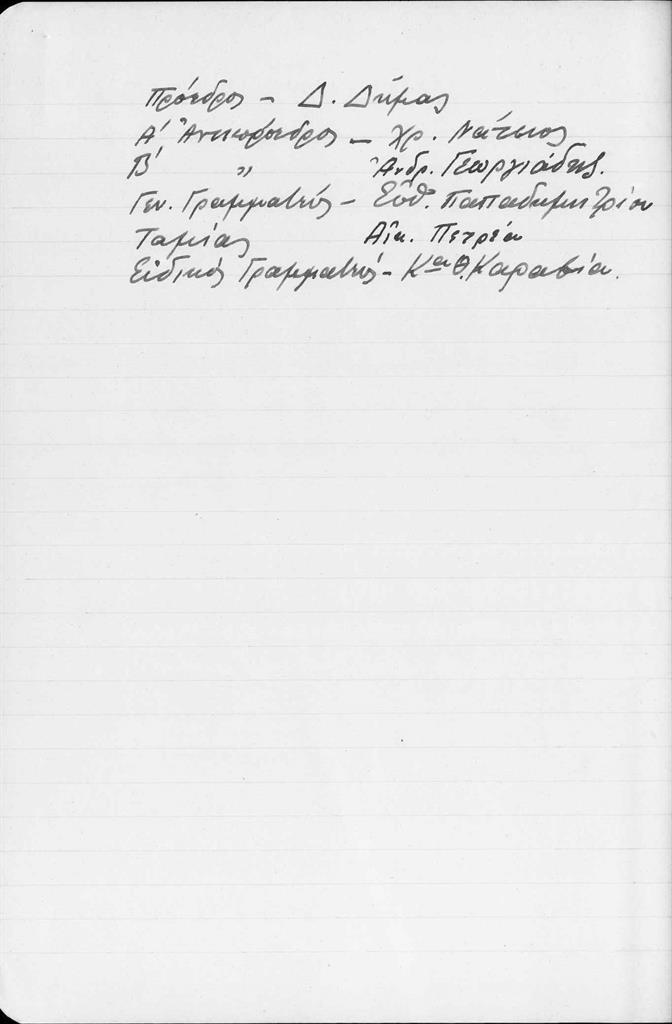 Πρόεδρος – Δ. Δήμας
Α' Ἀντιπρόεδρος – Χρ. Νάτσιος
Β' " Ἀνδρ. Γεωργιάδης.
Γεν. Γραμματεύς – Εὐθ. Παπαδημητρίου
Ταμίας Αἰκ. Πετρέα
Εἰδικός Γραμματεύς – Κα Θ. Καραβία.